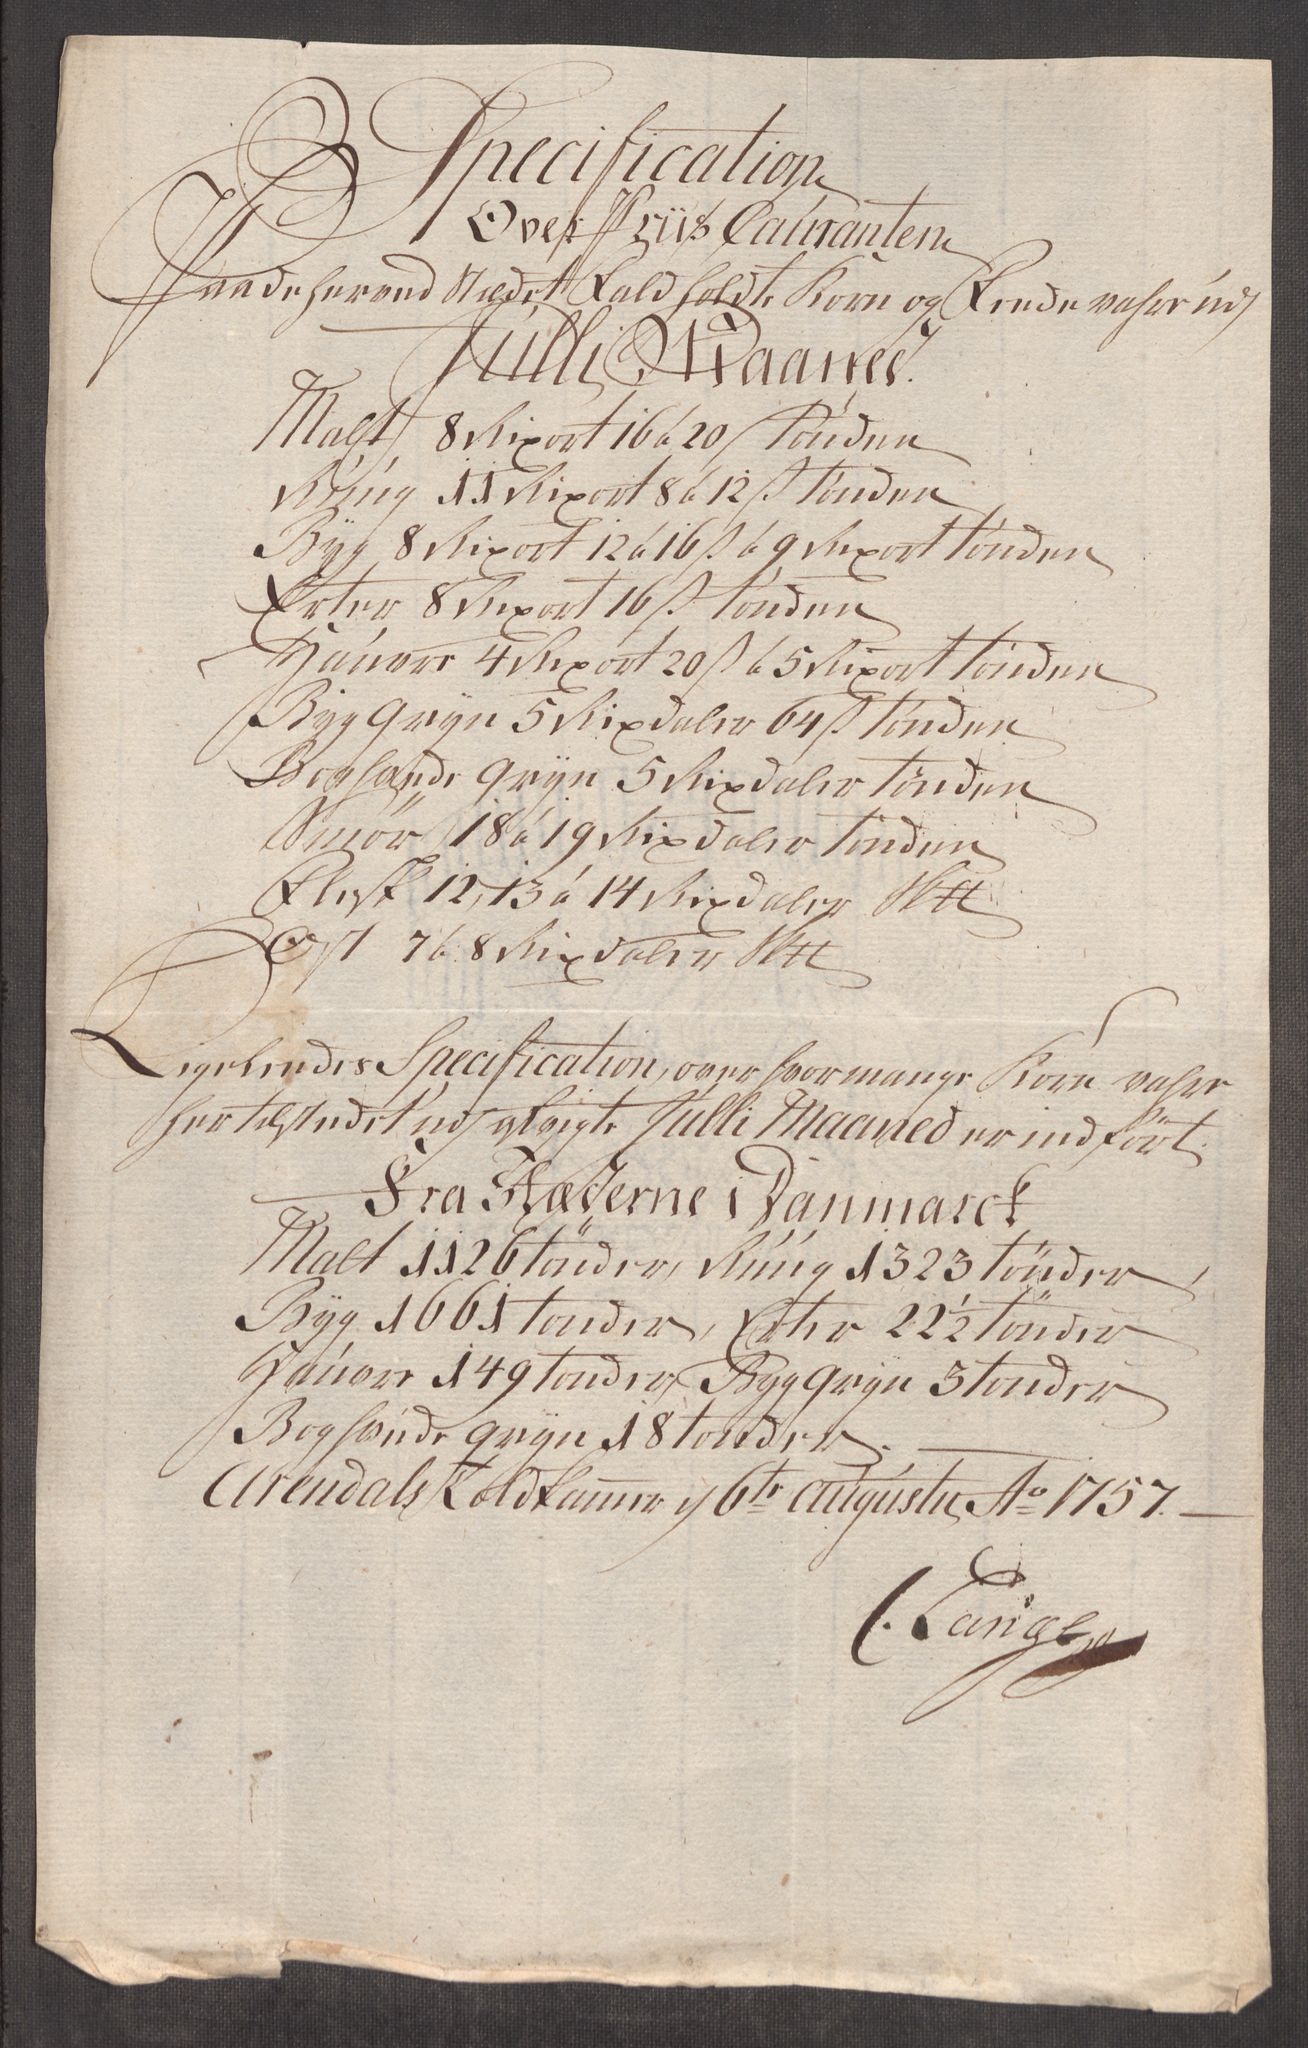 Specification
Over Priis Couranten
Paa de her ved Stædet falholdte Korn og Fæede vahre udj
Julli Maaned.
Malt 8 Rixort 16 à 20 s tönden
Rúúg 11 Rixort 8 à 12 s tönden
Býg 8 Rixort 12 à 16 s à 9 Rixort tönden
Erter 8 Rixort 16 s tönden
Haúvre 4 Rixort 20 s à 5 Rixort tönden
Býg grýn 5 Rixdaler 64 s tönden
Boghvede grýn 5 Rixdaler tönden
Smör 18 à 19 Rixdaler tönden
Flesk 12, 13 à 14 Rixdaler S℔
Ost 7 à 8 Rixdaler S℔
Ligeledes Specification, over hvor mange Korn vahre
her til Stedet udj afvigte Julli Maaned er indfört.
Fra Stæderne i Danmarck
Malt 1126 tönder, Rúúg 1323 tönder,
Býg 1661 tönder, Erter 22½ tönder
Haúvre 149 tönder, Býg grýn 5 tönder
Boghvede grýn 18 tönder.
Arendals Toldkamer d 6te Augústii Ao 1757.
C. Lange